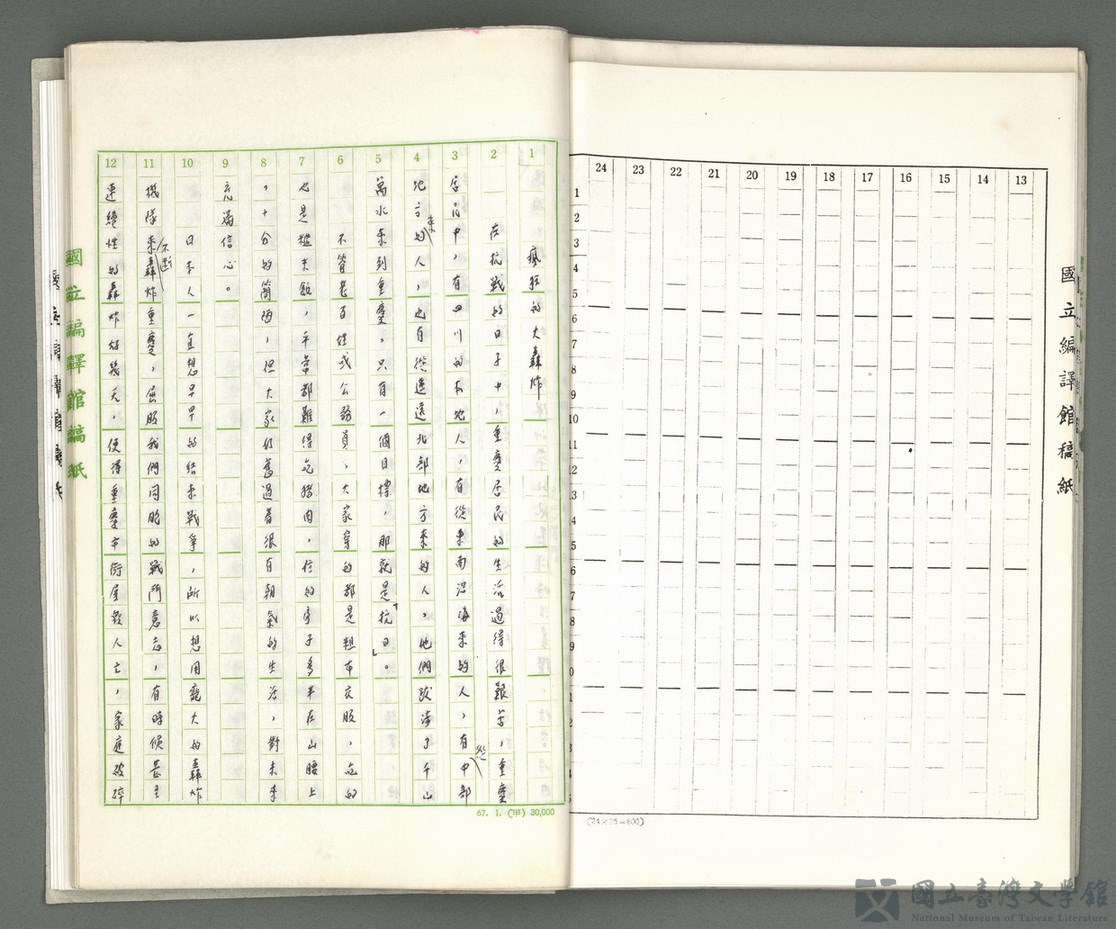 瘋狂的大轟炸
在抗戰的日子中，重慶居民的生活過得很艱苦，重慶
居民中，有四川的本地人，有從東南沿海來的人，有從中部
地方來的人，也有從遙遠北部地方來的人，他們跋涉了千山
萬水來到重慶，只有一個目標，那就是「抗日」。
不管老百姓或公務員，大家穿的都是粗布衣服，吃的
也是糙米飯，平常都難得吃豬肉，住的房子多半在山腰上
，十分的簡陋，但大家仍舊過着很有朝氣的生活，對未來
充滿信心。
日本人一直想早早的結束戰爭，所以想用龐大的轟炸
機隊來不斷轟炸重慶，屈服我們同胞的戰鬥意志，有時候甚至
連續性的轟炸好幾天，使得重慶市街屋毀人亡，家庭破碎
12 11 10 9 8 7 6 5 4 3 2 1
國立編譯館稿紙
67. 1. (甲) 30,000
24 23 22 21 20 19 18 17 16 15 14 13
國立編譯館稿紙
(24×25=600)
國立臺灣文學館
National Museum of Taiwan Literature